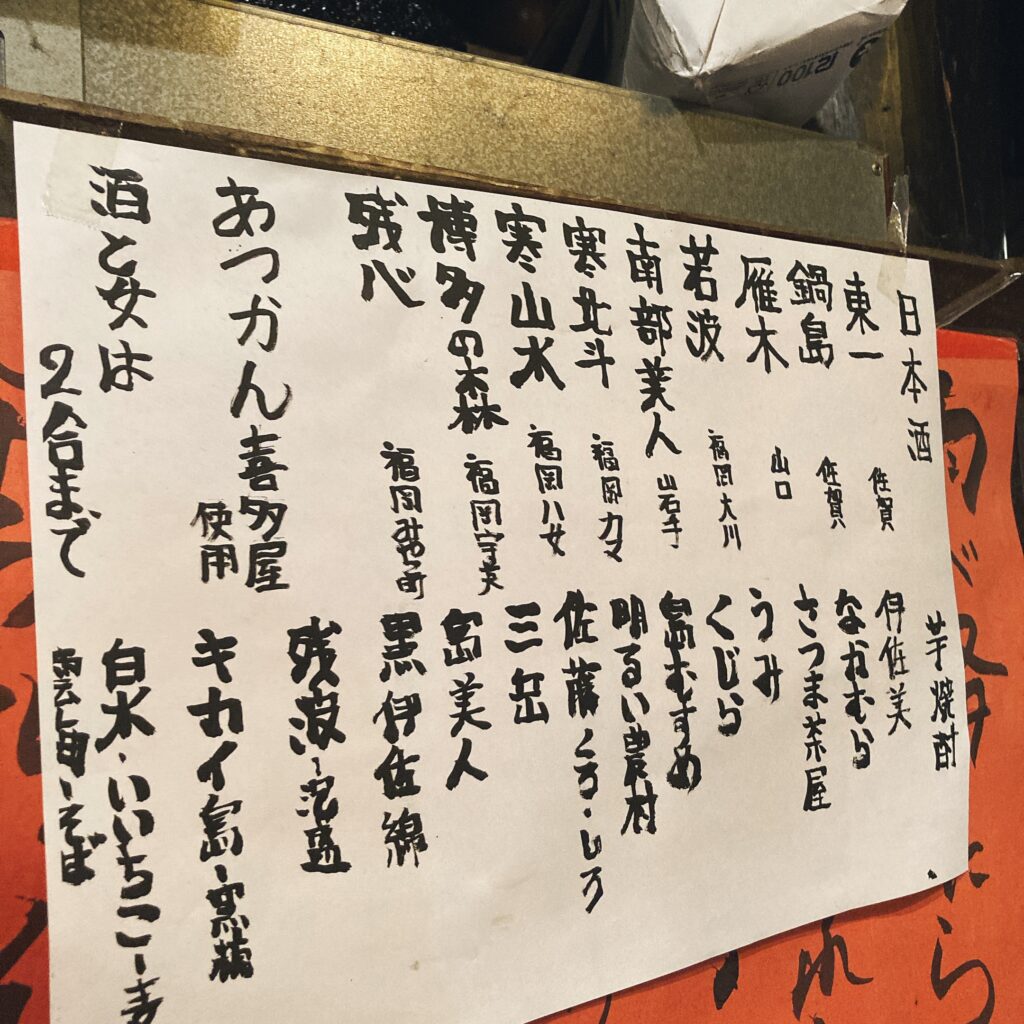 日本酒
東一 佐賀
鍋島 佐賀
雁木 山口
若波 福岡大川
南部美人 岩手
寒北斗 福岡カマ
寒山水 福岡八女
博多の森 福岡宇美
残心 福岡みやこ町
あつかん喜多屋
使用
酒と女は
2合まで
芋焼酎
伊佐美
なかむら
さつま茶屋
うみ
くじら
島むすめ
明るい農村
佐藤くろ・しろ
三岳
島美人
黒伊佐錦
残波-泡盛
キカイ島-黒糖
白水・いいちこ-麦
雲海-そば
12100